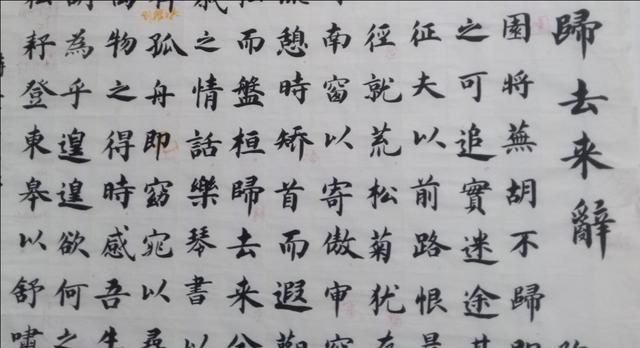 歸去来辭
園將蕪胡不歸
之可追實迷途其
征夫以前路恨晨
徑就荒松菊犹存
南窗以寄傲审容
憩時矫首而遐觀
而盤桓歸去来兮
之情話樂琴書以
孤舟即窈窕以尋
物之得時感吾生
為乎遑遑欲何之
耔登東皋以舒嘯